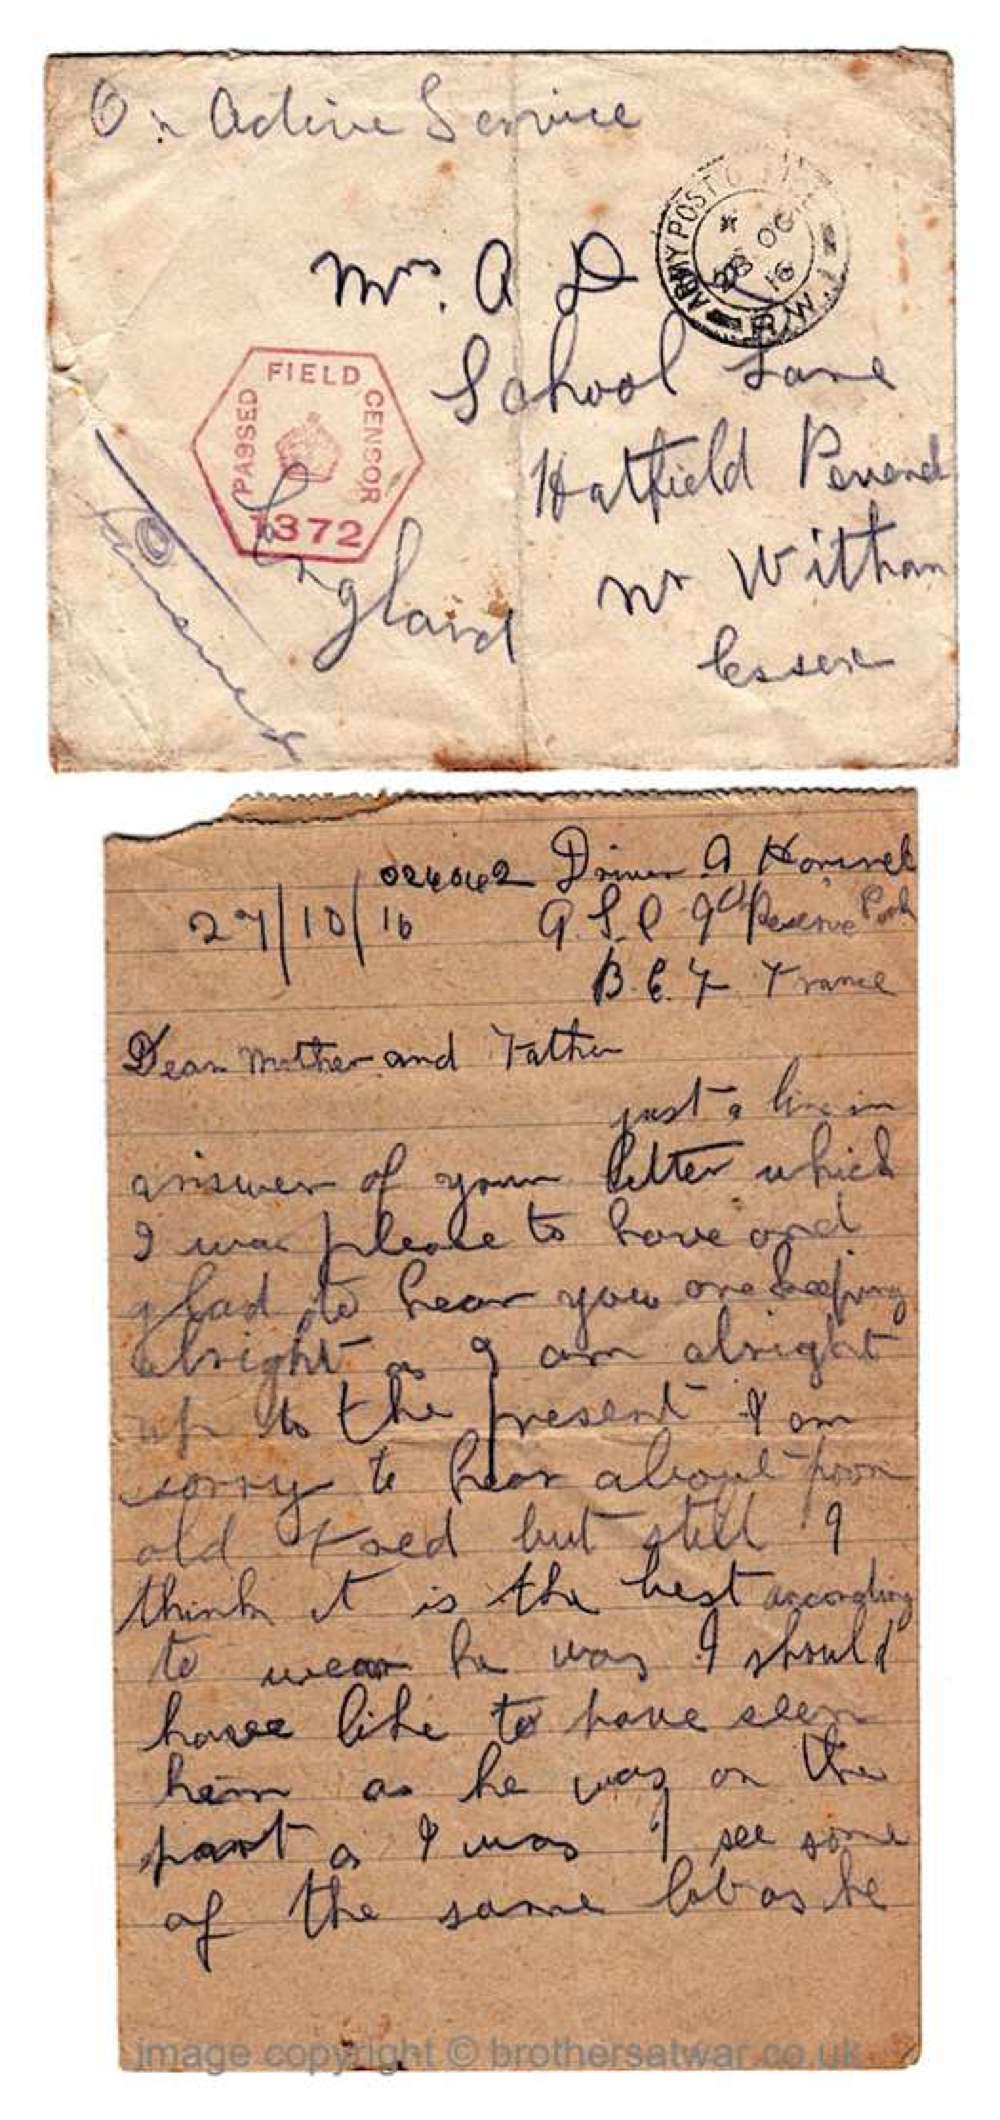 On Active Service
ARMY POST
28 OC
16
R.W.1
Mrs. A D
School Lane
FIELD
PASSED
CENSOR
1372
Hatfield Peverel
nr Witham
Essex
England
024042 Driver A
27/10/16
A.S.C 9th Reserve Park
B.E.F France
Dear Mother and Father
just a line in
answer of your letter which
I was please to have and
glad to hear you are keeping
alright as I am alright
up to the present I am
sorry to hear about poor
old Fred but still I
think it is the best according
to wear he was I should
have like to have seen
him as he was on the
part as I was I see some
of the same lot as he
image copyright © brothersatwar.co.uk